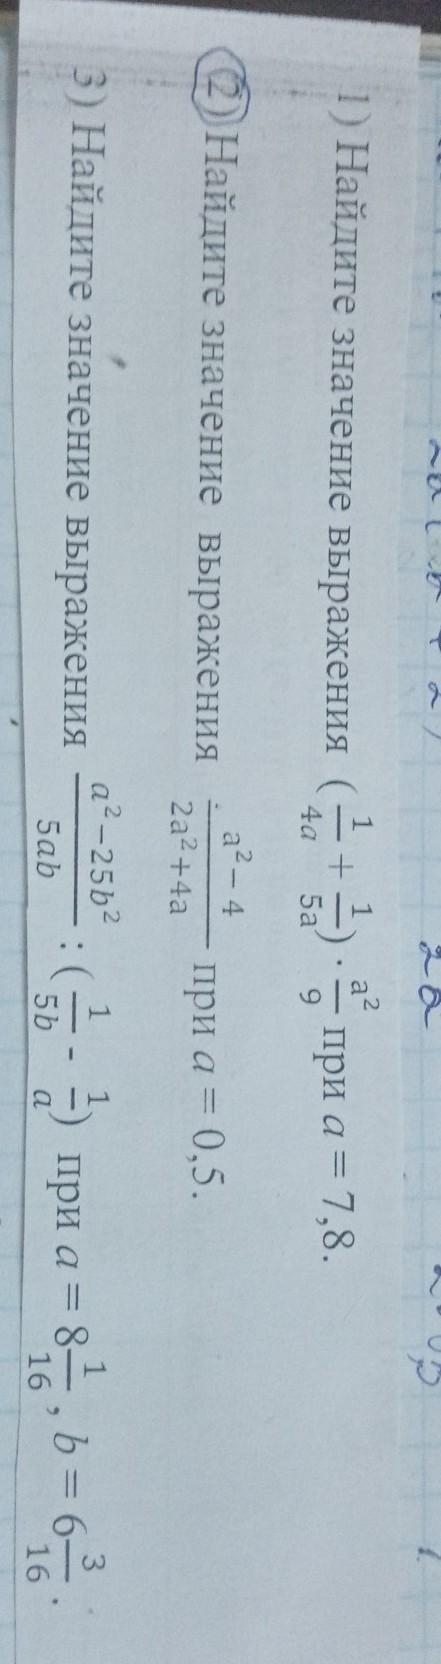 1) Найдите значение выражения (1/4a + 1/5a) · a²/9 при a = 7,8.
2) Найдите значение выражения a² – 4/2a² + 4a при a = 0,5.
3) Найдите значение выражения a² – 25b²/5ab : (1/5b - 1/a) при a = 8 1/16, b = 6 3/16.